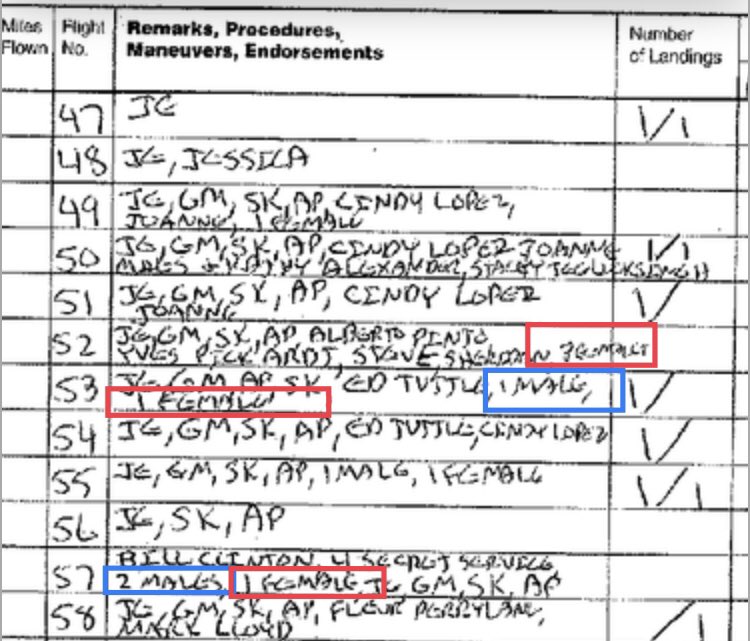 Miles Flight Remarks, Procedures, Number
Flown No. Maneuvers, Endorsements of Landings
47 JE 1/1
48 JE, JESSICA
49 JE, GM, SK, AP, CINDY LOPEZ,
JOANNE, 1 FEMALE
50 JE, GM, SK, AP, CINDY LOPEZ JOANNE 1/1
ALEXANDER,
51 JE, GM, SK, AP, CINDY LOPEZ 1/
JOANNE
52 JE, GM, SK, AP, ALBERTO PINTO
STEVE, 3 FEMALES
53 JE, GM, AP, SK, ED TUTTLE, 1 MALE, 1/
1 FEMALE
54 JE, GM, SK, AP, ED TUTTLE, CINDY LOPEZ 1/
55 JE, GM, SK, AP, 1 MALE, 1 FEMALE 1/1
56 JE, SK, AP
BILL CLINTON, 4 SECRET SERVICE
57 2 MALES, 1 FEMALE, JE, GM, SK, AP
58 JE, GM, SK, AP, FLEUR PERRYLANG, /1
MARK LLOYD